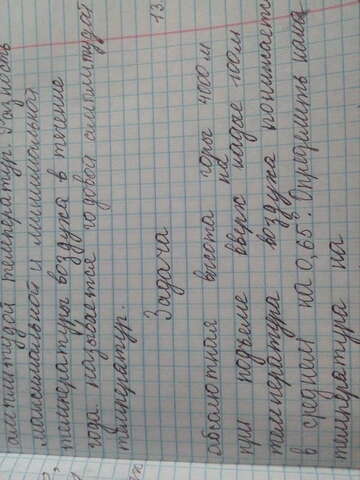 амплитудой температур. Разность
максимальной и минимальной
температуры воздуха в течение
года называется годовой амплитудой
температур.
13.
Задача
Абсолютная высота горы 4000 м
при подъеме вверх на каждые 100м
температура воздуха понижается
в среднем на 0,65°. Определить
температура на